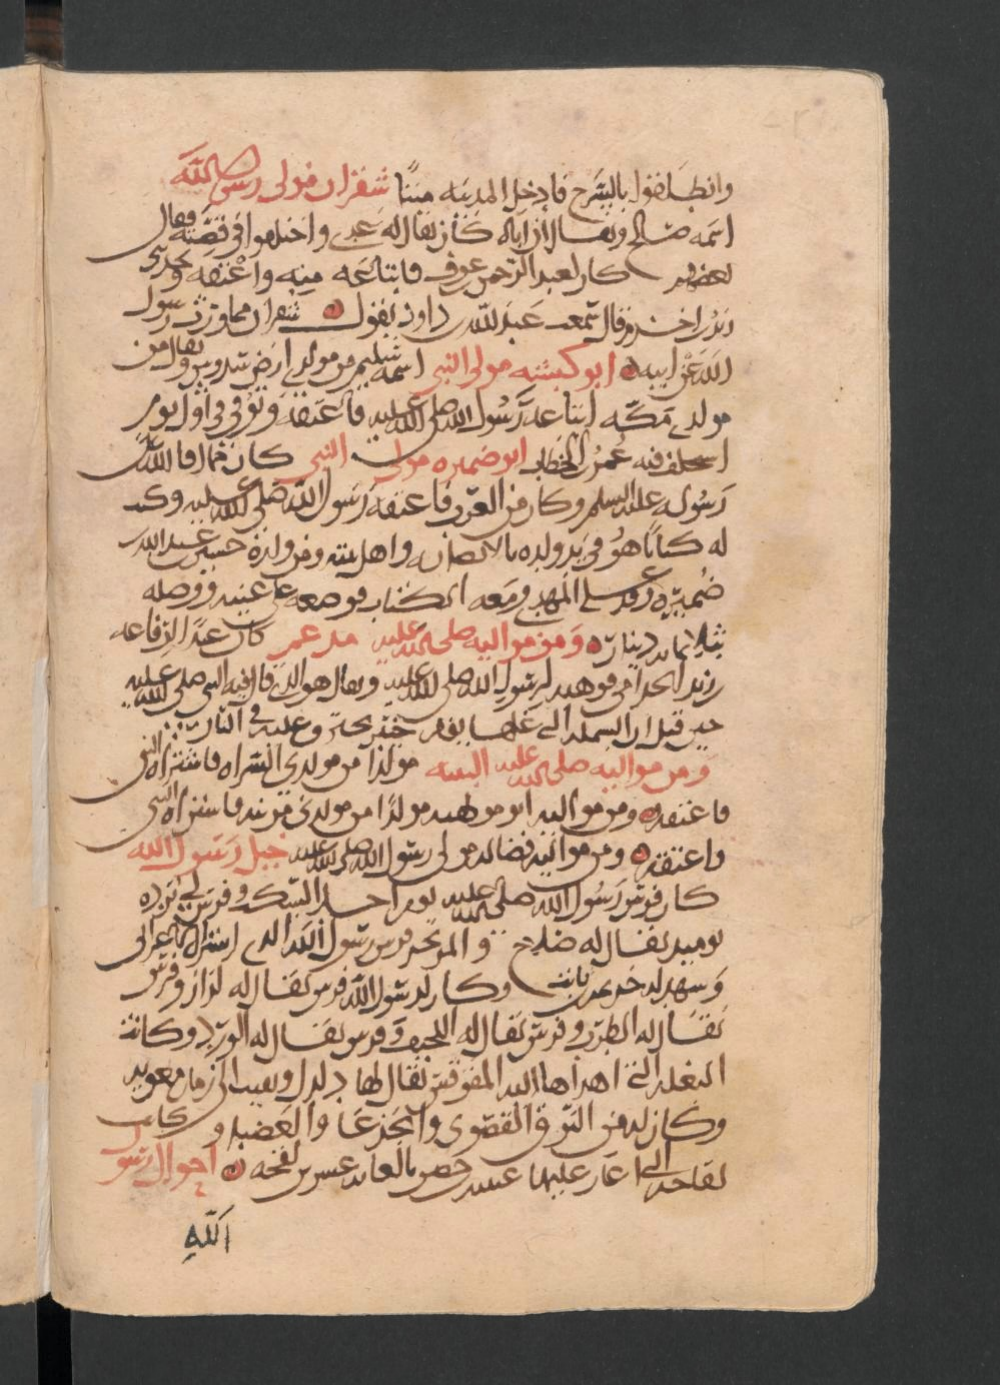 وانطلقوا بالسرح فادخل المدينه ميتا شقران مولى رسول الله
اسمه صالح ويقال ان اباه كان يقال له عدي واختلفوا في قصته فقال
بعضهم كان لعبد الرحمن بن عوف فابتاعه منه واعتقه وحدثني
زيد بن اخزم قال سمعت عبد الله بن داود يقول شقران مما ورث رسول
الله عن ابيه ابو كبشه مولى النبي اسمه سليم من مولدي ارض دوس ويقال من
مولدي مكه ابتاعه رسول الله صلى الله عليه فاعتقه وتوفي في اول يوم
استخلف فيه عمر بن الخطاب ابو ضميره مولى النبي كان مما افا الله على
رسوله عليه السلم وكان من العرب فاعتقه رسول الله صلى الله عليه وكتب
له كتابا هو في يد ولده بالايصاء به واهل بيته ومن ولده حسين بن عبد الله بن
ضميره وفد على المهدي ومعه الكتاب فوضعه على عينيه ووصله
بثلثمايه دينار ومن مواليه صلى الله عليه مدعم كان عبدا لرفاعه
بن زيد الجذامي فوهبه لرسول الله صلى الله عليه ويقال هو الذي قال فيه النبي صلى الله عليه
حين قتل ان الشمله التي غلها يوم خيبر تحترق عليه في النار
ومن مواليه صلى الله عليه انيسه مولدا من مولدي السراه فاشتراه النبي
فاعتقه ومن مواليه ابو مويهبه مولدا من مولدي مزينه فاشتراه النبي
واعتقه ومن مواليه فضاله مولى رسول الله صلى الله عليه خيل رسول الله
كان فرس رسول الله صلى الله عليه يوم احد السكب وفرس لابي برده
يوميذ يقال له ملاوح والمرتجز فرس رسول الله الذي اشتراه من الاعرابي
وشهد له خزيمه بن ثابت وكان لرسول الله فرس يقال له لزاز وفرس
يقال له الظرب وفرس يقال له اللحيف وفرس يقال له الورد وكانت
البغله التي اهداها اليه المقوقس يقال لها دلدل وبقيت الى زمان معويه
وكان له من النوق القصوى والجذعا والعضبا وكانت
لقاحه التي اغار عليها عيينه بن حصن بالغابه عشرين لقحه احوال رسول
الله